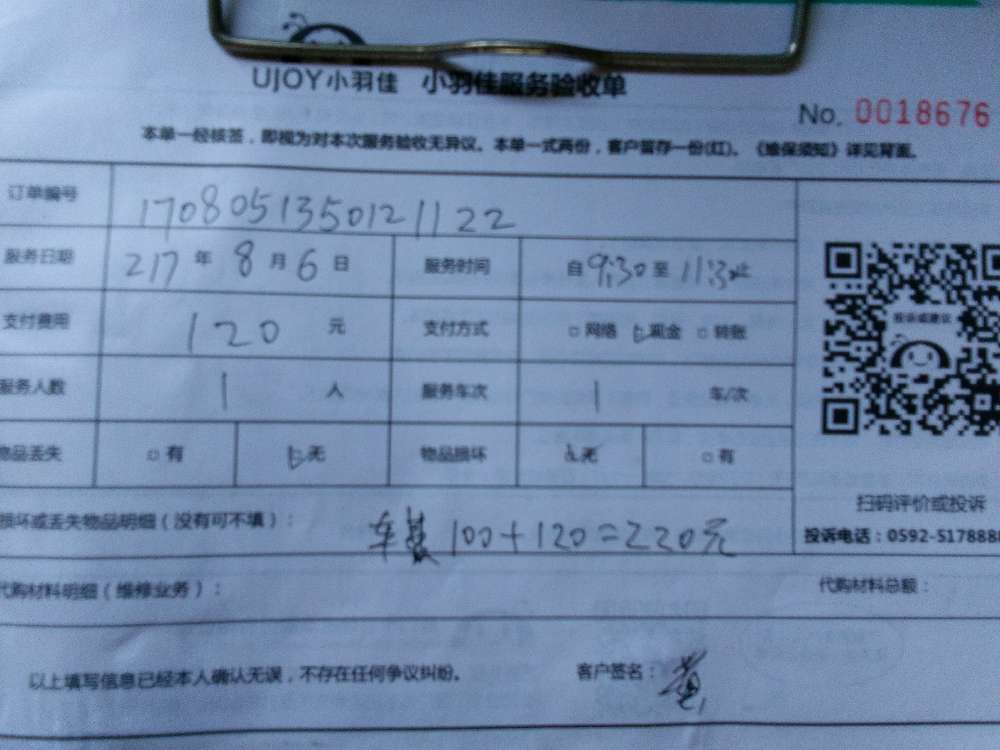 UJOY小羽佳 小羽佳服务验收单
No. 0018676
本单一经核签，即视为对本次服务验收无异议。本单一式两份，客户留存一份(红)。《维保须知》详见背面。
订单编号 1708051350121122
服务日期 217年8月6日 服务时间 自9:30至11:30止
支付费用 120元 支付方式 □网络 ☑现金 □转账
服务人数 1人 服务车次 1车/次
物品丢失 □有 ☑无 物品损坏 ☑无 □有
投诉或建议
扫码评价或投诉
投诉电话：0592-5178888
损坏或丢失物品明细（没有可不填）： 100+120=220元
代购材料明细（维修业务）： 代购材料总额：
以上填写信息已经本人确认无误，不存在任何争议纠纷。 客户签名：黄